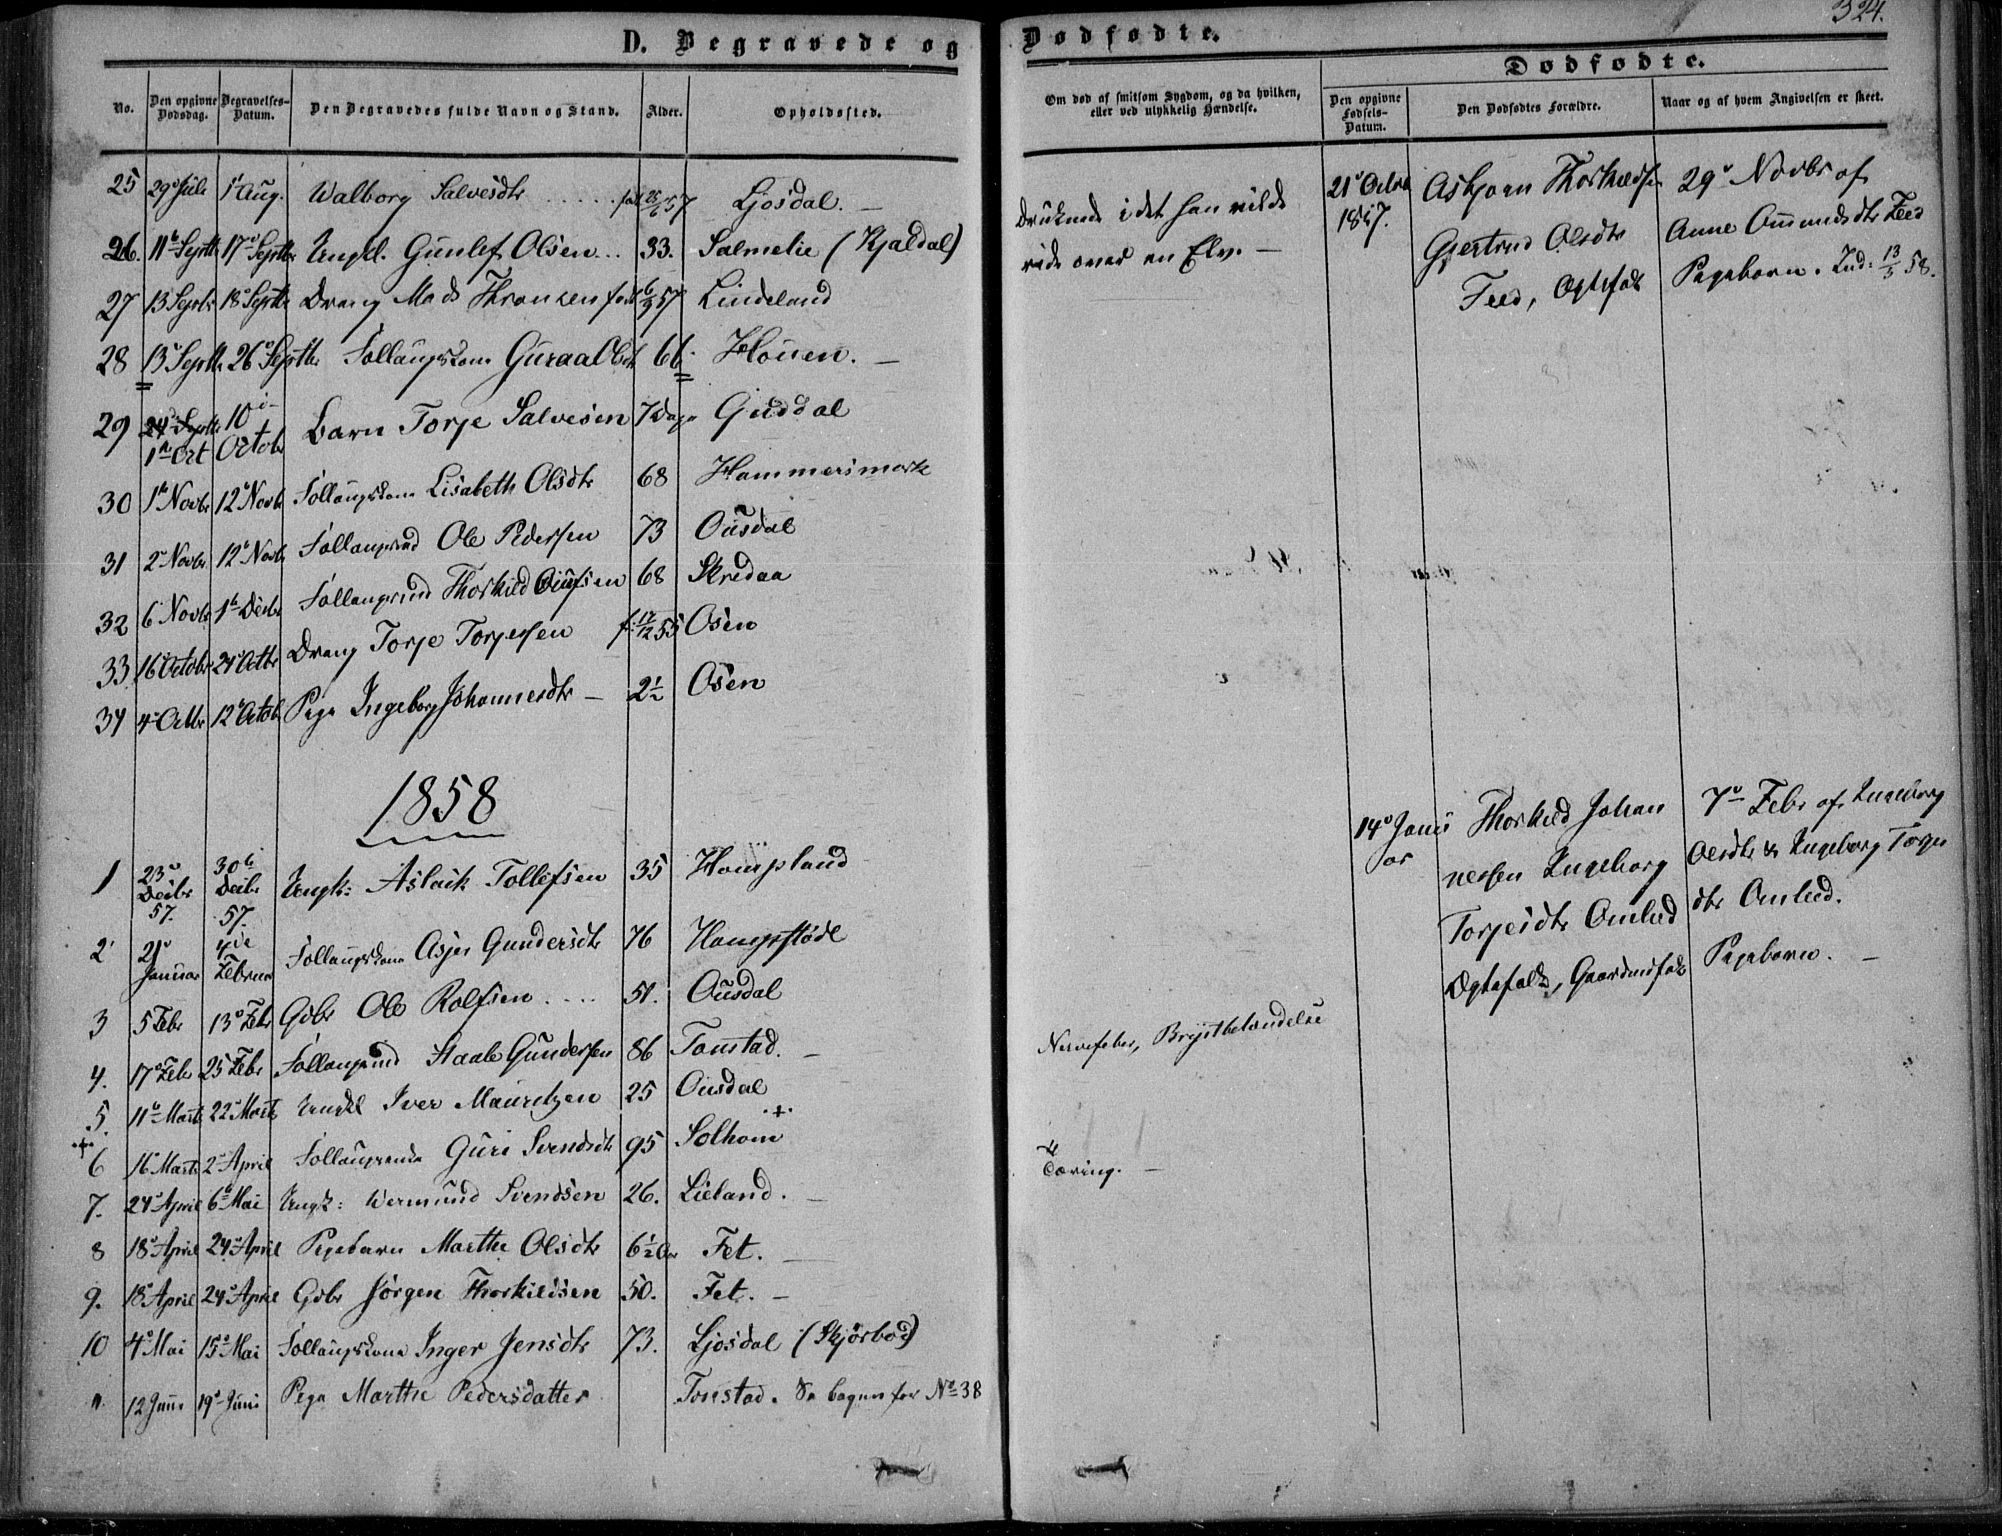 324.
D. Begravede og Dødfødte.
Dødfødte.
No. Den opgivne Dødsdag. Begravelses-Datum. Den Begravedes fulde Navn og Stand. Alder. Opholdssted. Om død af smitsom Sygdom, og da hvilken, eller ved ulykkelig Hændelse. Den opgivne Fødsels-Datum. Den Dødfødtes Forældre. Naar og af hvem Angivelsen er skeet.
25 29 Juli 1 Aug. Walborg Salvesdtr 57 Ljosdal. –
26. 11 Septbr 17 Septbr Ungk. Gunlef Olsen .. 33. Salmelie (Kjaldal)
27 13 Septbr 18 Septbr Dreng Mads Thronsen 57 Lindeland
28 13 Septbr 26 Septbr Follaugskone Guraa Olsdtr 66 Houen. –
29 24 Septbr 1 Oct 10 Octobr Barn Torje Salvesen 7 Dage Guddal
30 1 Novbr 12 Novbr Follaugskone Lisabeth Olsdtr 68 Hammersmark
31 2 Novbr 12 Novbr Follaugsmd Ole Pedersen 73 Ousdal
32 6 Novbr 1 Decbr Follaugsmd Thorkild 68 Skredaa
33 16 Octobr 24 Octbr Dreng Torje Torjesen f. 17/12 55 Osen
34 4 Octbr 12 Octobr Pige Ingeborg Johannesdtr – 2½ Osen
1858
1 23 Decbr 57. 30 Decbr 57. Ungk: Aslaik Tollefsen 35 Hompland
2 21 Januar 4de Februar Follaugskone Asjer Gundersdtr 76
3 5 Febr 13 Febr Gbr Ole Rolfsen .... 51. Ousdal
4. 17 Febr 25 Febr Follaugsmd Staale Gundersen 86 Tonstad. –
5. 11 Marts 22 Marts Ungkl Iver Mauritzen 25 Ousdal
6 16 Marts 2 April Guri Svendsdtr 95 Solhom
7. 24 April 6 Mai Ungk: Wermund Svendsen 26. Lieland. –
8 18 April 24 April Pigebarn Marthe Olsdtr 6½ Fet. –
9. 18 April 24 April Gbr Jørgen Thorkildsen 50. Fet. –
10 4 Mai 15 Mai Follaugskone Inger Jensdtr 73. Ljosdal (Skjørbod)
12 Juni 19 Juni Pige Marthe Pedersdatter Tonstad. Se bagen for No 38
Druknede idet han vilde
ride over en Elv. –
21 Octbr
1857.
Asbjørn Thorkildsen
Gjertrud Olsdtr
Feed, Ægtefolk
29 Novbr af
Anne Omundsdtr Feed
Pigebarn. Ind: 13/5 58.
14 Janu
ar
Thorkild Johan
nessen Ingeborg
Torjesdtr Omlid
Ægtefolk, Gaardmdfolk
7 Febr af Ingeborg
Olsdtr & Ingeborg Torjes
dtr Omlid.
Pigebarn. –
Nervefeber, Brystbetændelse
Tæring. –